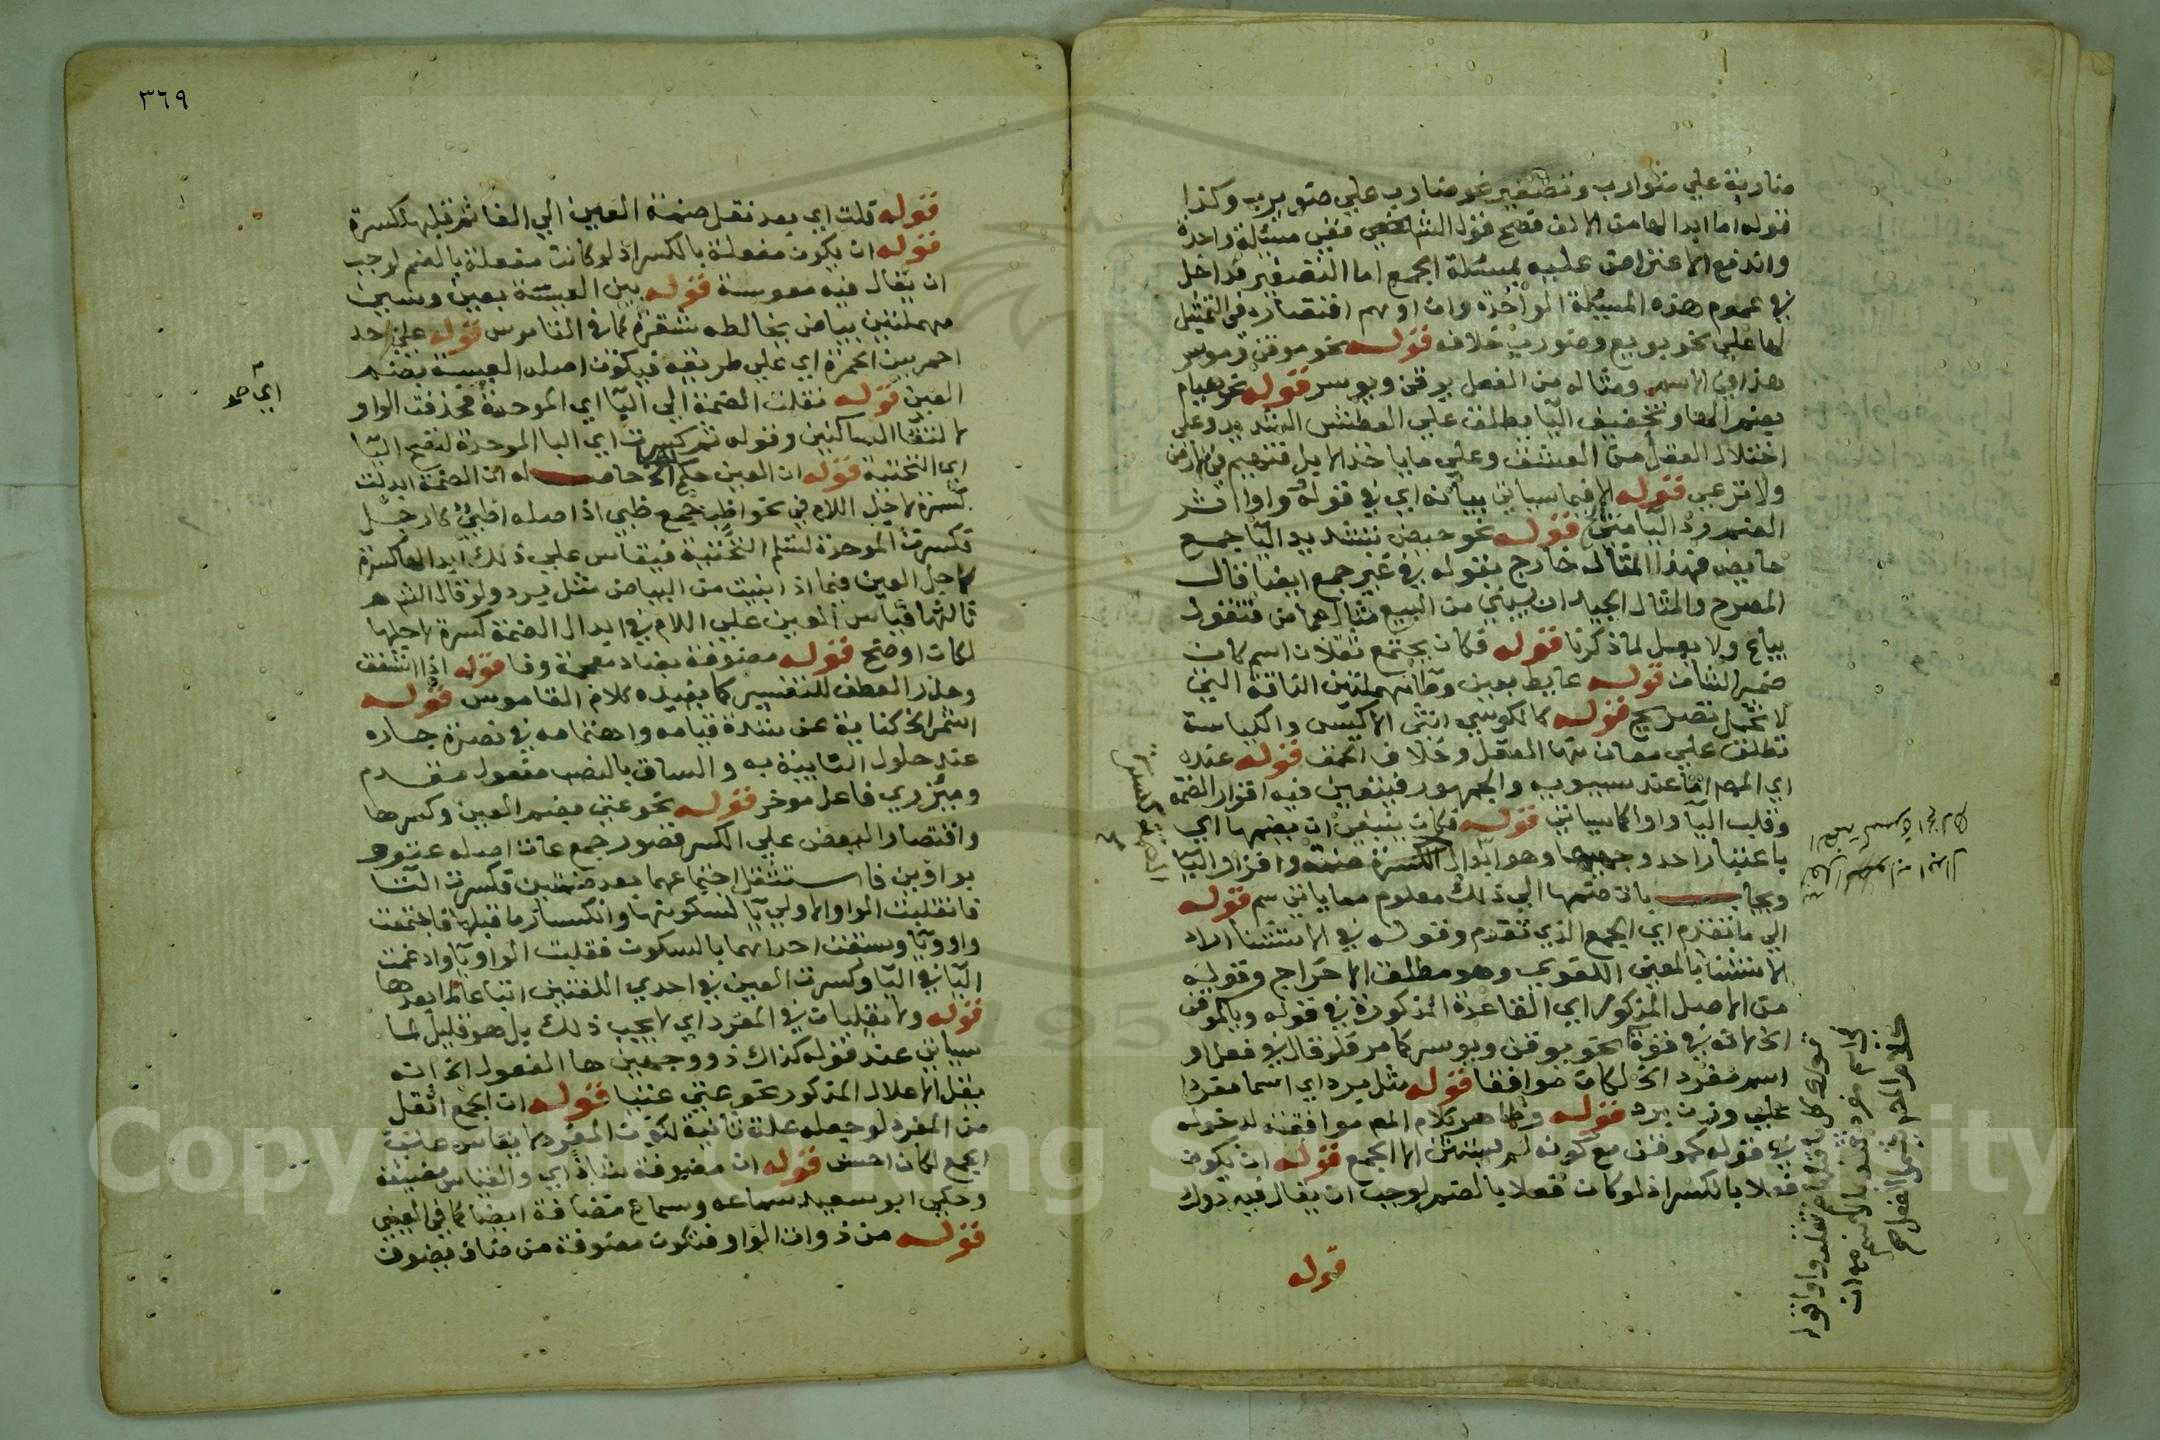 ضاربة علي ضوارب وتصغير نحو ضارب علي ضويرب وكذا
قوله اما ابدالها من الالف فصح قول الشم ففي مسئلة واحدة
واندفع الاعتراض عليه بمسئلة الجمع اما التصغير فداخل
في عموم هذه المسئلة الواحدة وان اوهم اقتصاره في التمثيل
لها علي نحو بويع وضورب خلافه قوله نحو موقن وموسر
هذا في الاسم ومثاله من الفعل يوقن ويوسر قوله نحو هيام
بضم الها وتخفيف اليا يطلق علي العطش الشديد وعلي
اختلال العقل من العشق وعلي ما ياخذ الابل فتهيم في الارض
ولا ترعي قوله الا فيما سياتي بيانه اي في قوله وواوا اثر
الضم رد اليا متي قوله نحو حيض بتشديد اليا جمع
حايض فهذا المثال خارج بقوله في غير جمع ايضا قال
المصرح والمثال الجيد ان يبني من البيع مثال حماض فتقول
بياع ولا يعل لما ذكرنا قوله فكان يجتمع ثقلان اسم كان
ضمير الشان قوله عايط بعين وطا مهملتين الناقة التي
لا تحمل تصريح قوله كالكوسي انثي الاكيس والكياسة
تطلق علي معان منها العقل وخلاف الحمق قوله عنده
اي المص اما عند سيبويه والجمهور فيتعين فيه اقرار الضمة
وقلب اليا واوا كما سياتي قوله فكان ينبغي ان يضمها اي
باعتبار احد وجهيها وهو ابدال الكسرة ضمة واقرار اليا
ويجاب بان ضمها الي ذلك معلوم مما ياتي سم قوله
الي ما تقدم اي الجمع الذي تقدم وقوله في الاستثنا اراد
الاستثنا بالمعني اللغوي وهو مطلق الاخراج وقوله
من الاصل المذكور اي القاعدة المذكورة في قوله ويا كموقن
الخ لانه في قوة نحو يوقن ويوسر كما مر فلو قال في فعل او
اسم مفرد الخ لكان موافقا قوله مثل يرد اي اسما مفردا
علي وزن يرد قوله وظاهر كلام المص موافقته لدخوله
في قوله كموقن مع كونه لم يستثن الا الجمع قوله ان يكون
فعلا بالكسر اذ لو كان فعلا بالضم لوجب ان يقال فيه دوك
قوله
٣٦٩
قوله قلت اي بعد نقل ضمة العين الي الفا ثم قبلها كسرة
قوله ان يكون مفعلة بالكسر اذ لو كانت مفعلة بالضم لوجب
ان يقال فيه معوسة قوله بين العيسة بعين وسين
مهملتين بياض يخالطه شقرة كما في القاموس قوله علي حد
احمر بين الحمرة اي علي طريقه فيكون اصله العيسة بضم
العين قوله نقلت الضمة الي اليا اي الموحدة فحذفت الواو
لالتقا الساكنين وقوله ثم كسرت اي البا الموحدة لتصح اليا
اي التحتية قوله ان العين حكم الخ حاصله ان الضمة ابدلت
كسرة لاجل اللام في نحو اظب جمع ظبي اذ اصله اظبي كارجل
فكسرت الموحدة لتسلم التحتية فيقاس علي ذلك ابدالها كسرة
لاجل العين فيما اذا بنيت من البياض مثل يرد ولو قال الشم
ثالثها قياس العين علي اللام في ابدال الضمة كسرة لاجلها
لكان اوضح قوله مضوفة بضاد معجمة وفا قوله اذا اشفق
وحذر العطف للتفسير كما يفيده كلام القاموس قوله
اشمر الخ كناية عن شدة قيامه واهتمامه في نصرة جاره
عند حلول النايبة به والساق بالنصب مفعول مقدم
وميزري فاعل موخر قوله نحو عتي بضم العين وكسرها
واقتصار البعض علي الكسر قصور جمع عات اصله عتوو
بواوين فاستثقل اجتماعهما بعد ضمتين فكسرت التا
فانقلبت الواو الاولي يا لسكونها وانكسار ما قبلها فاجتمعت
واو ويا وسبقت احداهما بالسكون فقلبت الواو يا وادغمت
اليا في اليا وكسرت العين في احدي اللغتين اتباعا لما بعدها
قوله ولا ينقلبان في المفرد اي لا يجب ذلك بل هو قليل لما
سياتي عند قوله كذاك ذو وجهين جا الفعول الخ انه
يقل الاعلال المذكور نحو عتي عتيا قوله ان الجمع اثقل
من المفرد لو جعله علة ثانية لكون المفرد لا يقاس علي
الجمع لكان احسن قوله ان مضيوفة شاذ اي والقياس مضيفة
وحكي ابو سعيد سماعه وسماع مضافة ايضا كما في العيني
قوله من ذوات الواو فتكون مضوفة من ضاف يضوف